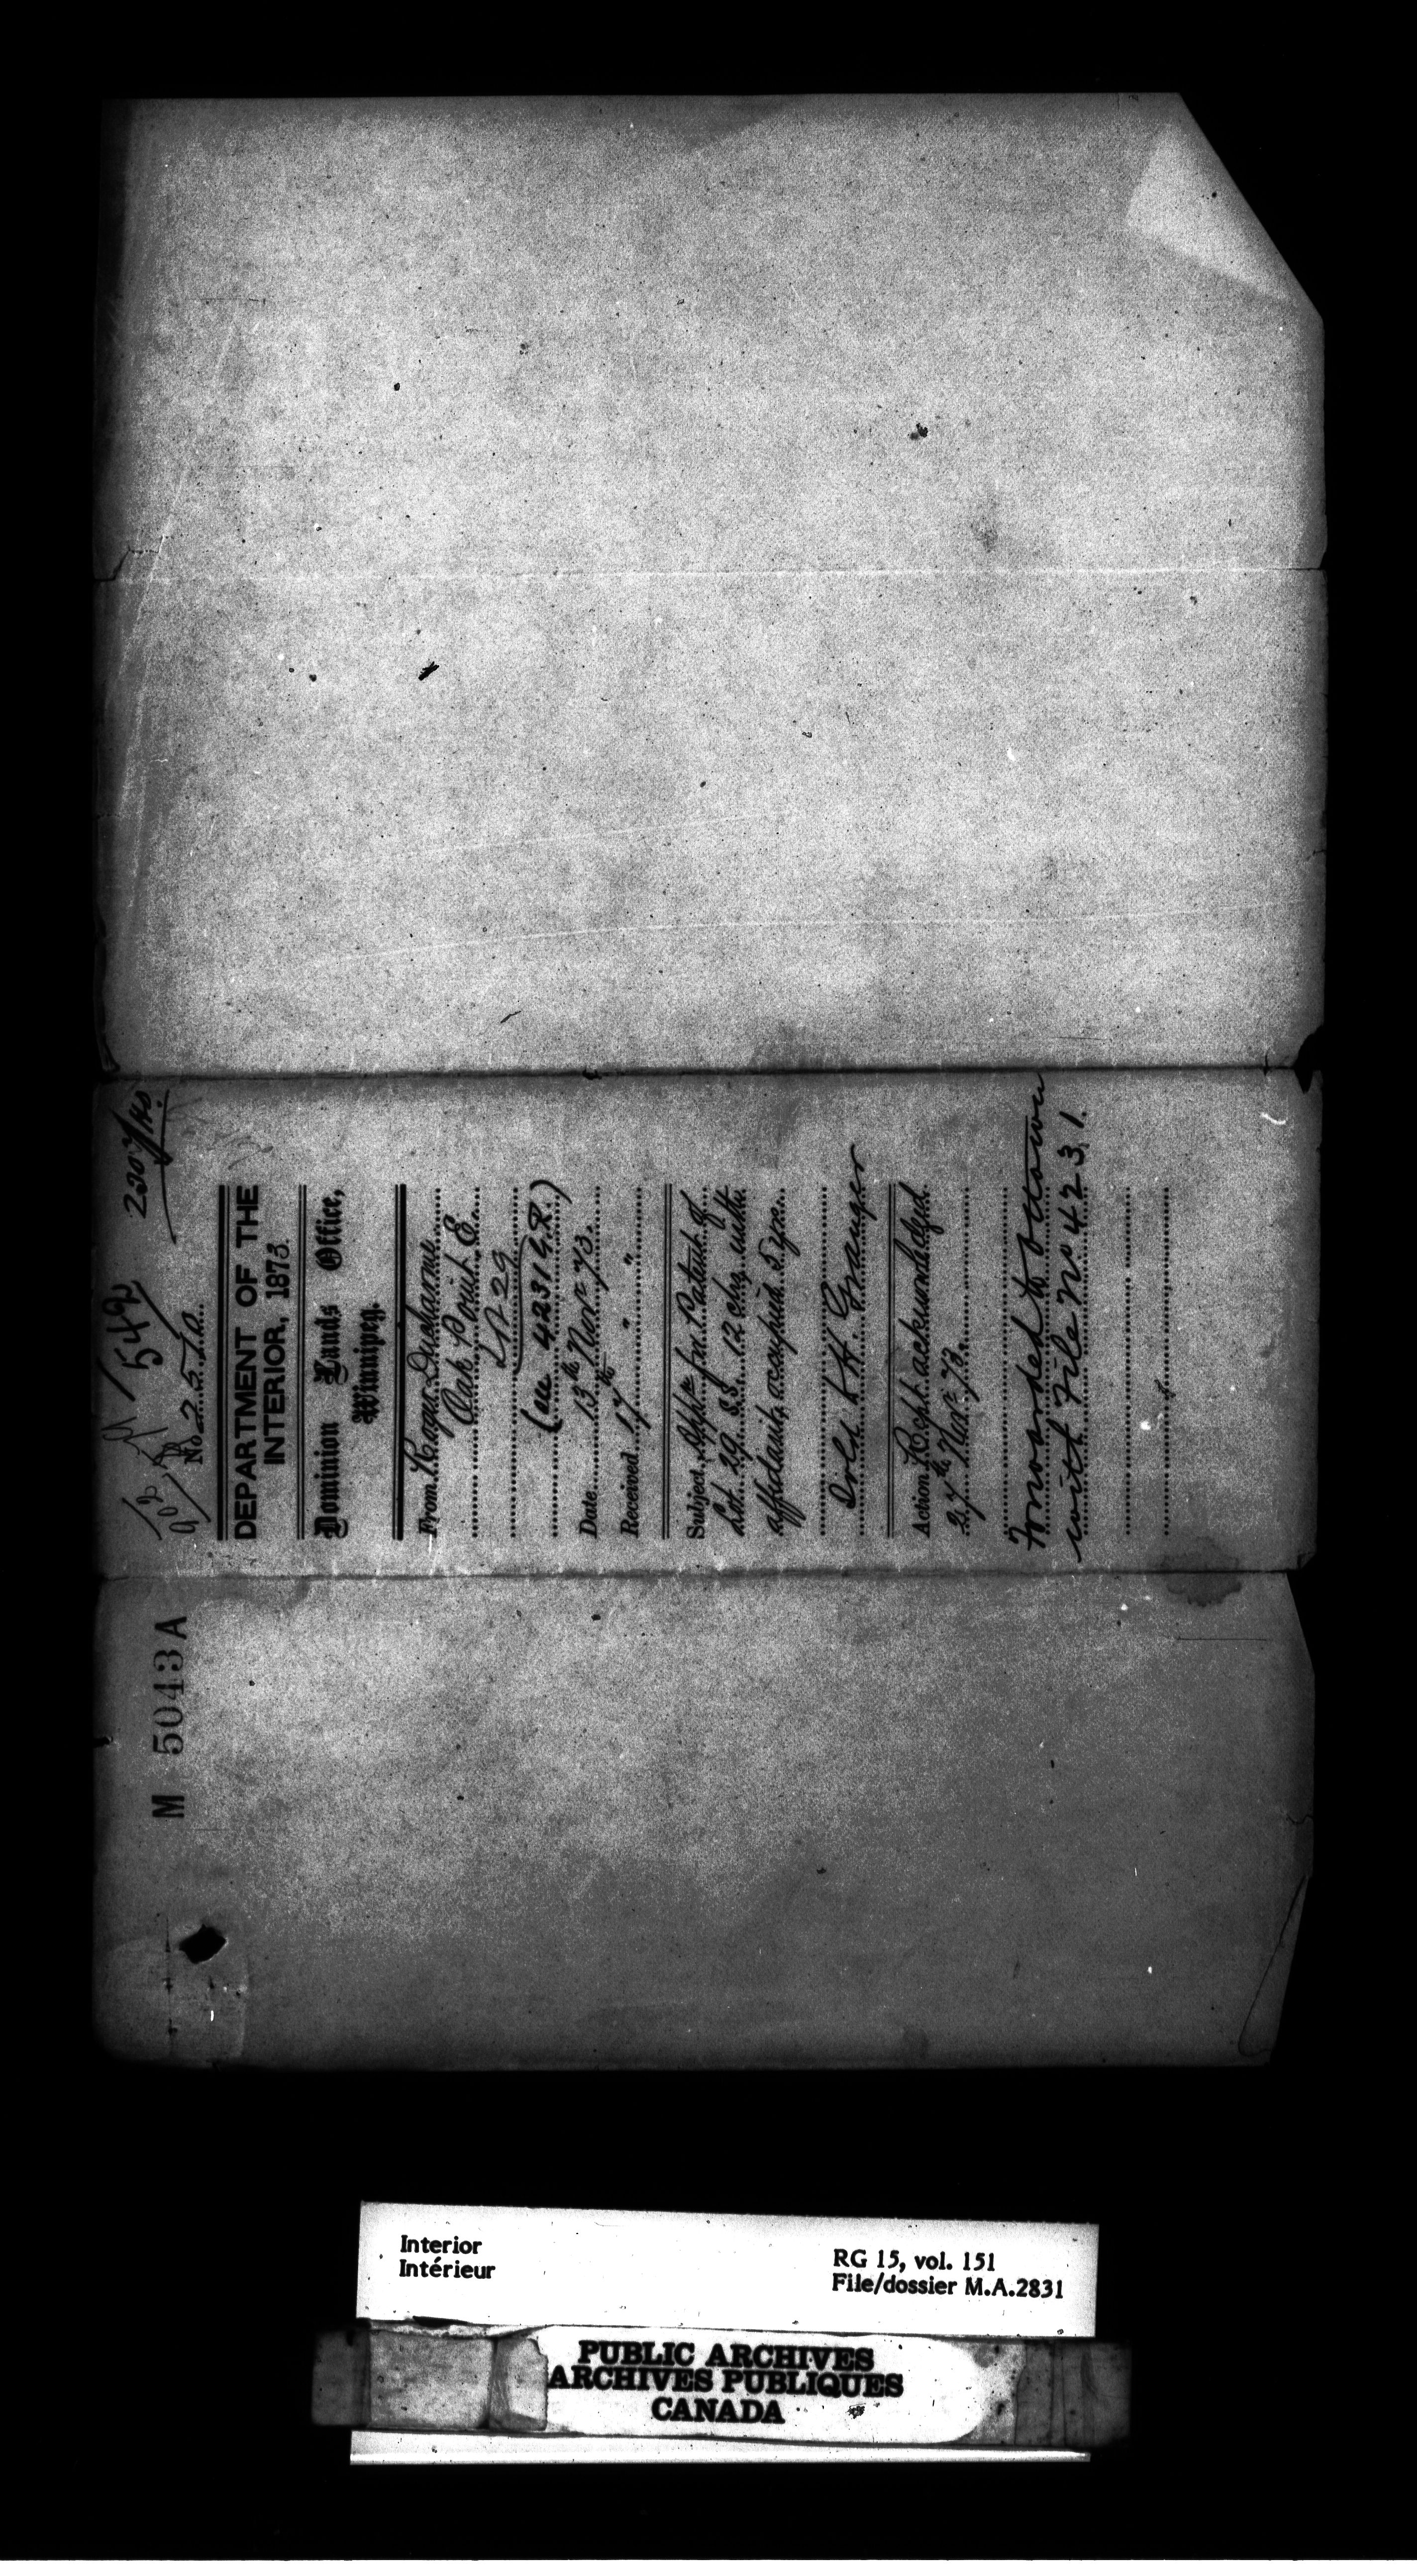 542
No 2510.
DEPARTMENT OF THE
INTERIOR, 1873.
Dominion Lands Office,
Winnipeg.
From Roger Ducharme
Oak Point E.
Lot 29
4231 L.R.)
Date 13th Novr 73.
Received 17th " "
Subject, Appln for Patent of
Lot 29 S.S. 12 chs with
affidavit, occupied 5 yrs.
H. Granger
Action Rept acknowledged
27th Nov 73.
Forwarded to Ottawa
with File No 4231.
M 5043A
Interior
Intérieur
RG 15, vol. 151
File/dossier M.A.2831
PUBLIC ARCHIVES
ARCHIVES PUBLIQUES
CANADA